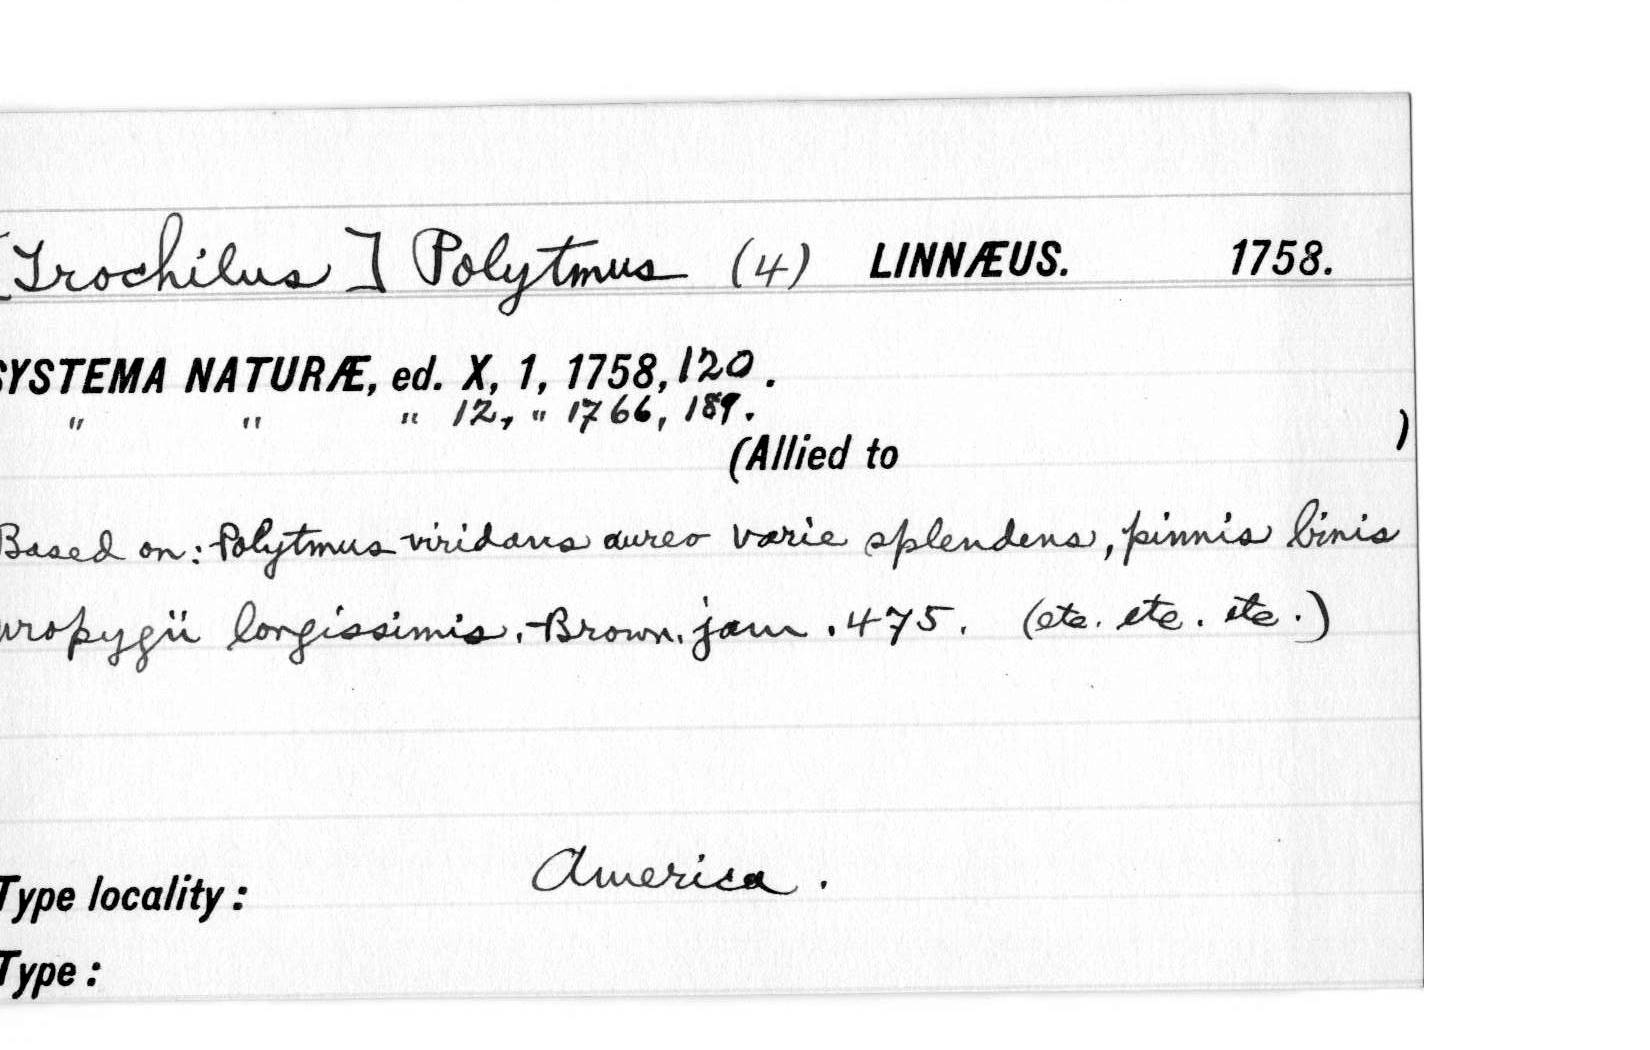 [Trochilus] Polytmus (4) LINNÆUS. 1758.
SYSTEMA NATURÆ, ed. X, 1, 1758, 120.
" " " 12, " 1766, 189.
(Allied to )
Based on: Polytmus viridans aureo varie splendens, pinnis binis
uropygii longissimis. Brown. jam. 475. (etc. etc. etc.)
America.
Type locality:
Type: